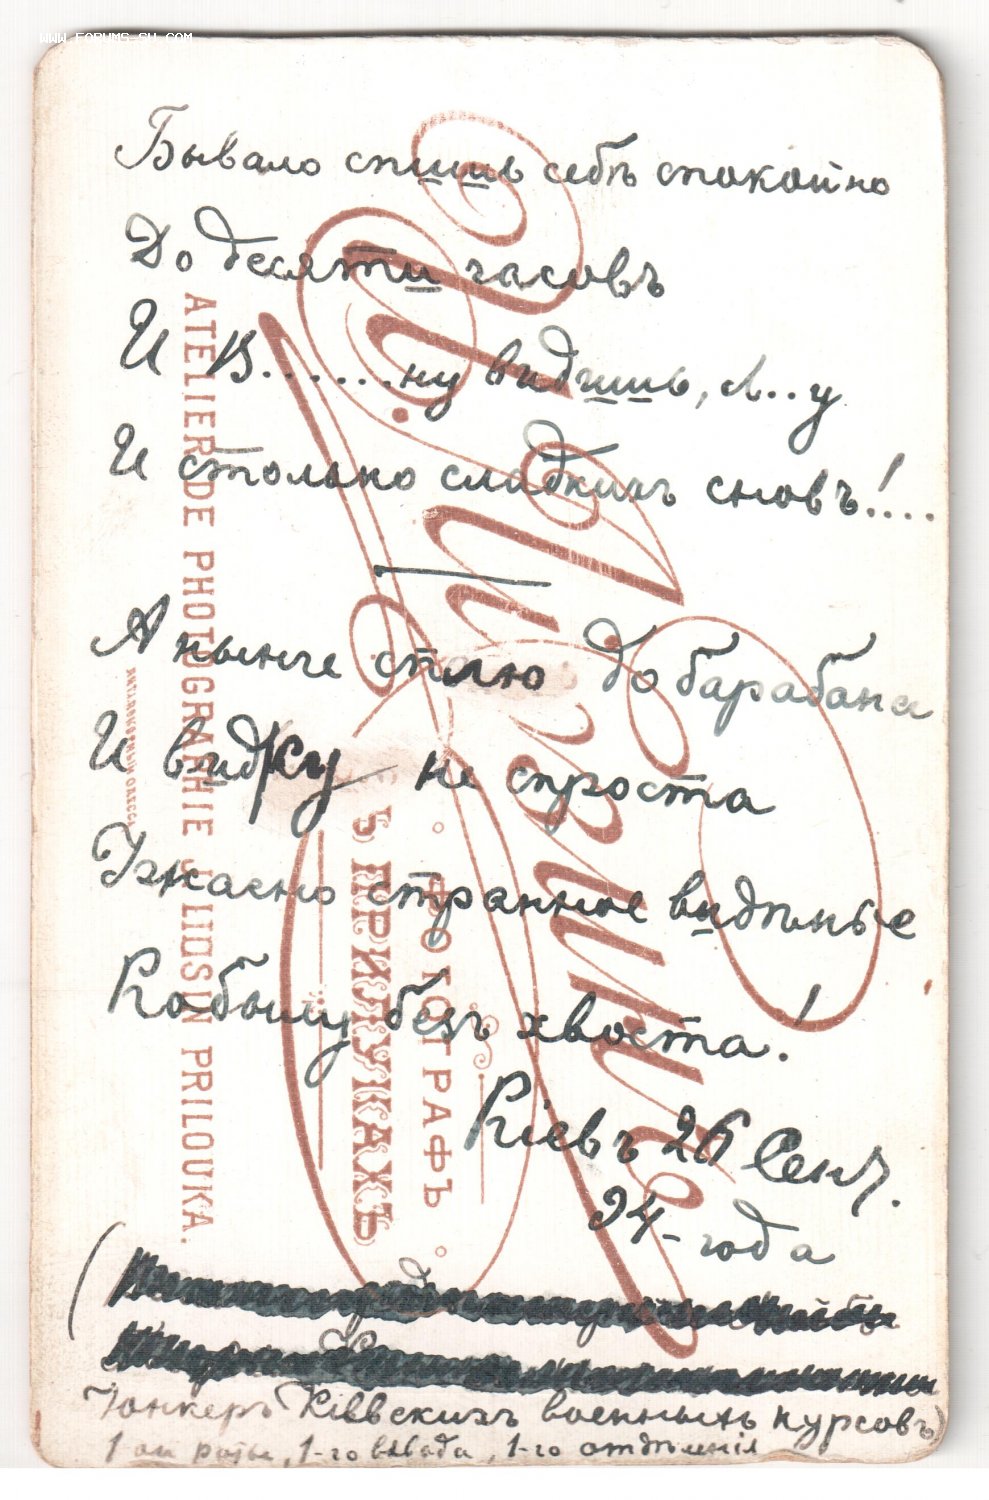 WWW.FORUMS.SU.COM
Бывало спишь себѣ спокойно
До десяти часовъ
И В.......ну видишь, Л..у
И столько сладкихъ сновъ!....
А нынче сплю до барабана
И вижу не спроста
Ужасно странное видѣнье
Кобылу безъ хвоста!
Кіевъ 26 Сент.
94-года
(
Юнкеръ Кіевскихъ военныхъ курсовъ)
1-ой роты, 1-го взвода, 1-го отдѣленія
ATELIER DE PHOTOGRAPHIE PRILOUKA.
ФОТОГРАФЪ
ПРИЛУКАХЪ